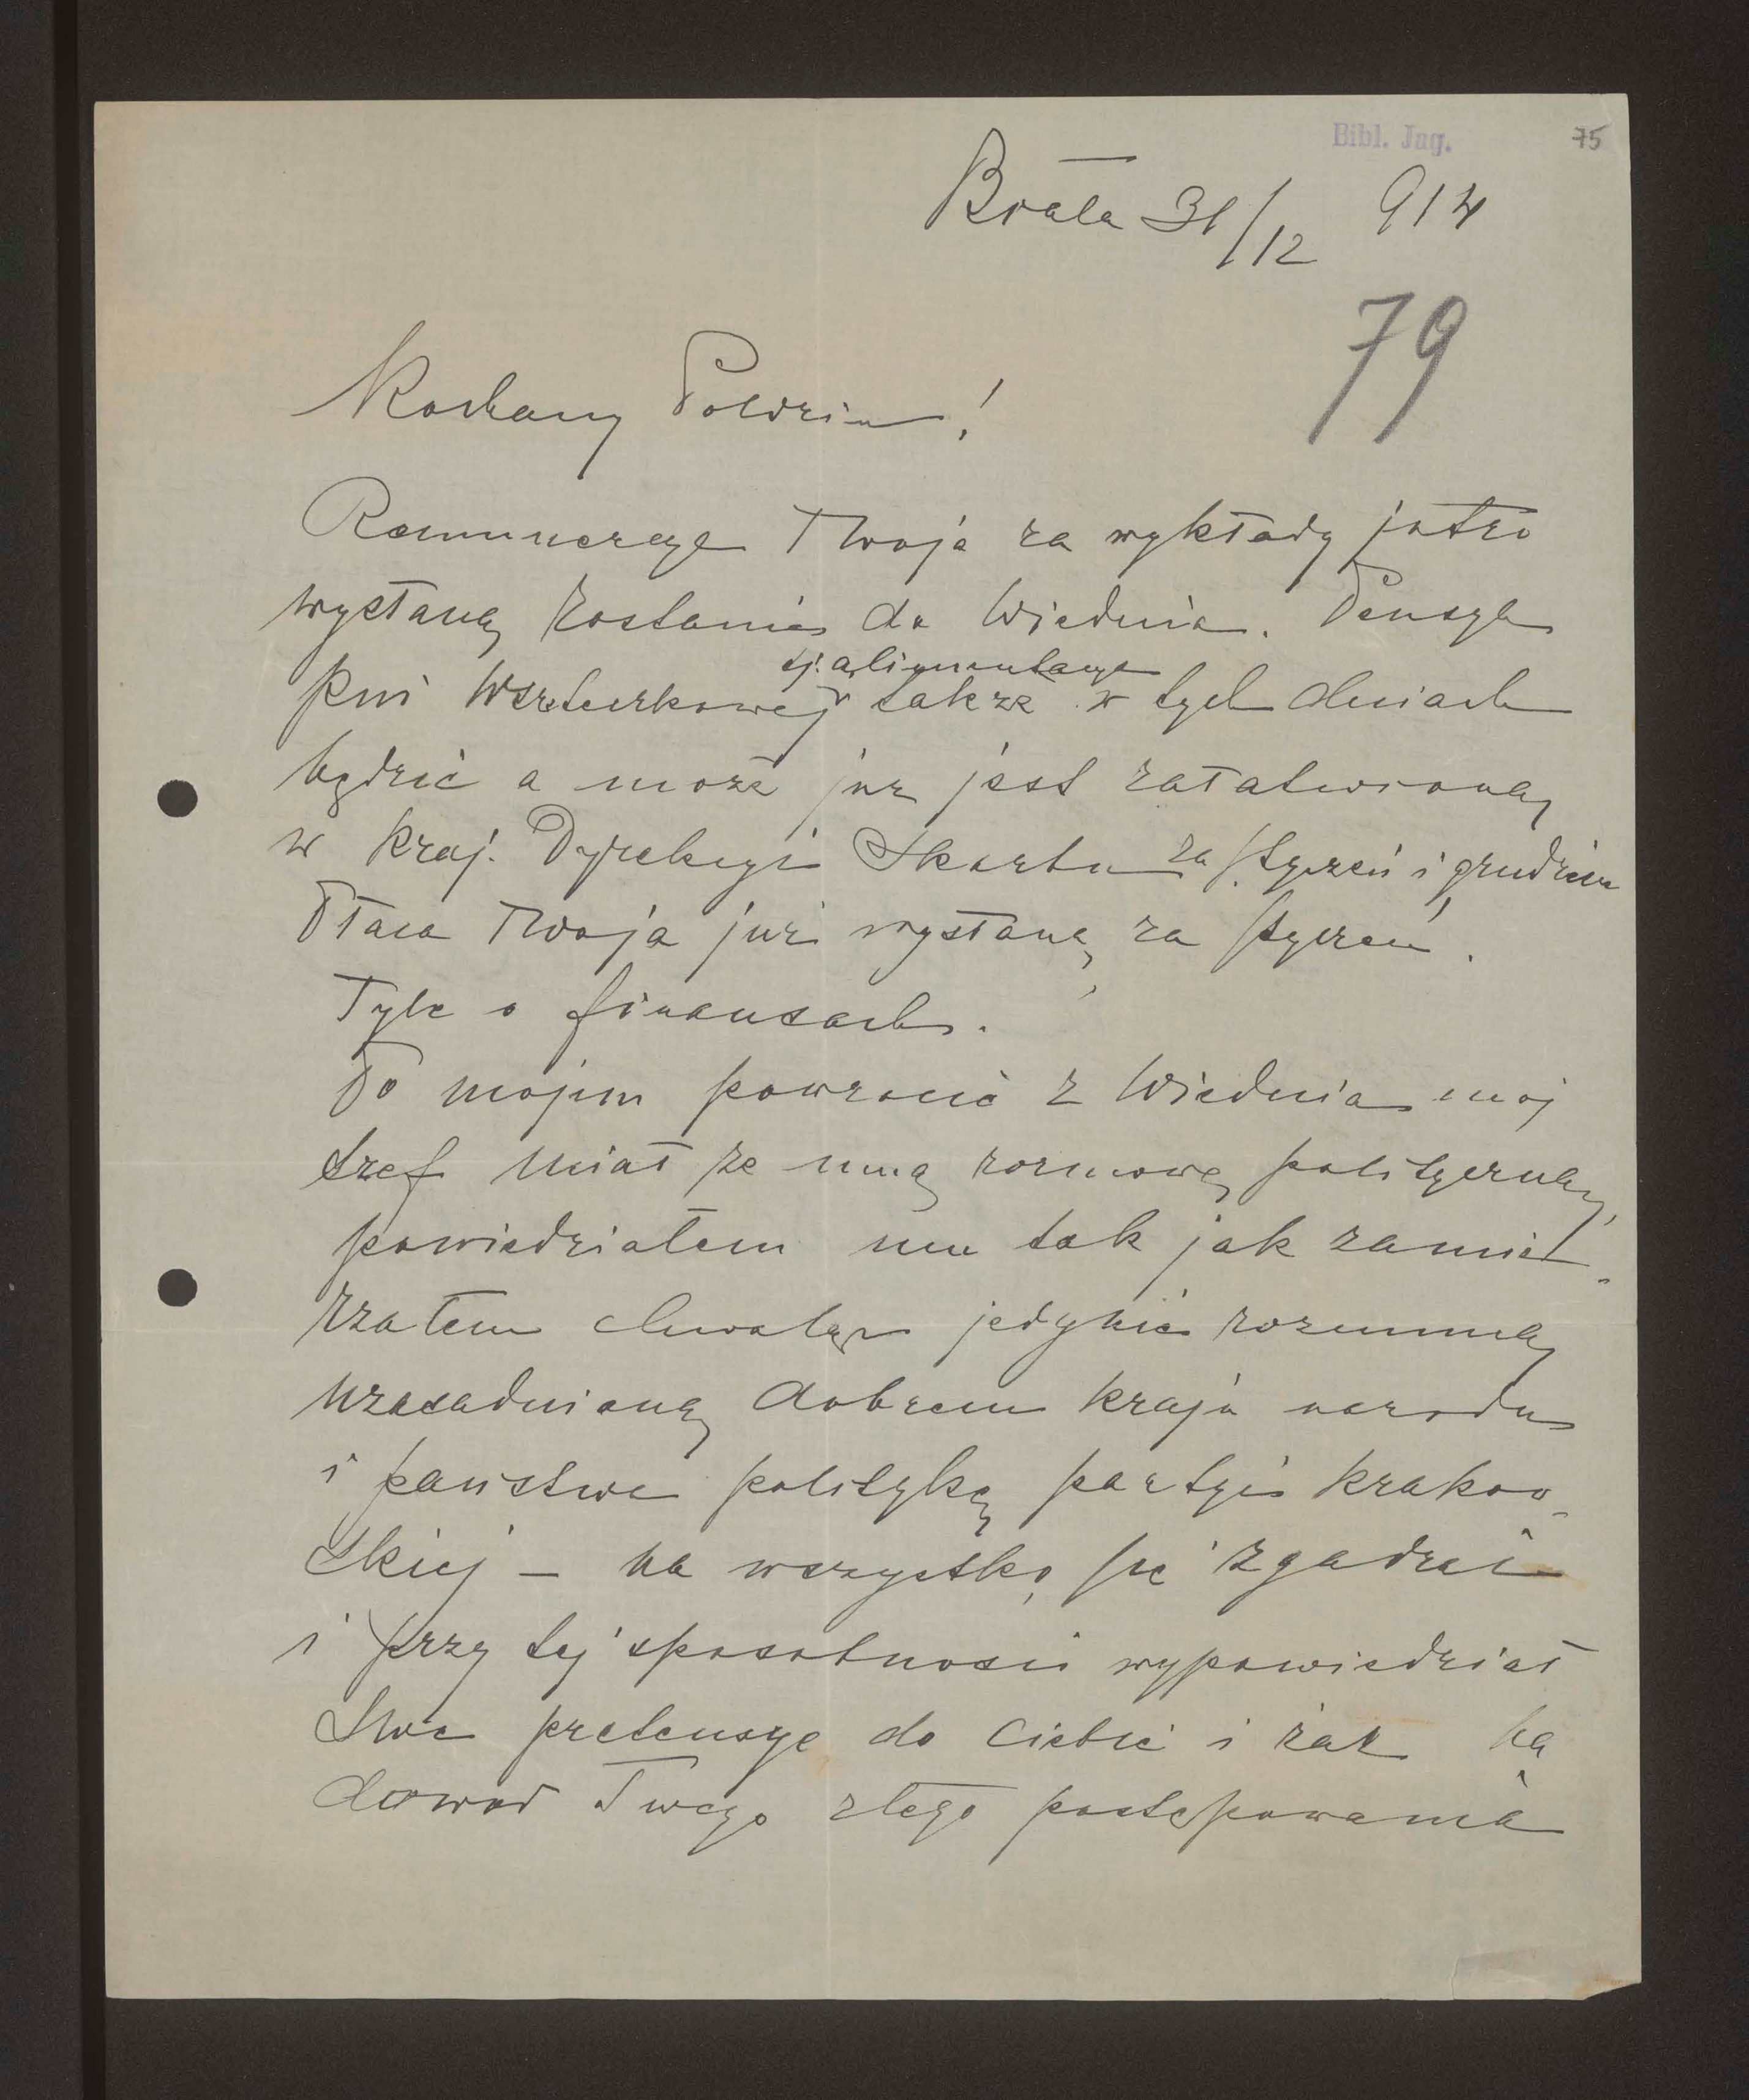 Bibl. Jag.
75
Biała 31/12 914
79
Kochany Poldziu!
Remuneracya Twoja za wykłady jutro
wysłaną zostanie do Wiednia. Pensya
tj. alimentacya
Pni także w tych dniach
będzie a może już jest załatwioną
w Kraj. Dyrekcyi Skarbu za styczeń i grudzień
Płaca Twoja już wysłaną za styczeń.
Tyle o finansach.
Po mojem powrocie z Wiednia mój
szef miał ze mną rozmowę polityczną,
powiedziałem mu tak jak zamie-
rzałem chwaląc jedynie rozumną
uzasadnioną dobrem kraju narodu
i państwa politykę partyi krakow-
skiej – na wszystko się zgadzał
i przy tej sposobności wypowiedział
Swe pretensye do Ciebie i żal na
dowód Twego złego postępowania